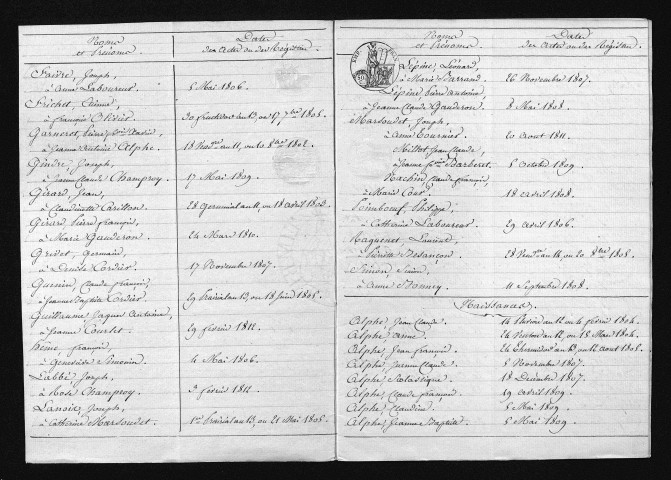 Noms
et Prénoms
Date
des Actes ou des Registres
Faivre, Joseph,
à Anne Laboureur.
5 Mai 1806.
Frichet, Etienne,
à françoise Olivier.
30 fructidor an 13, ou 17 7bre 1805.
Garneret,
à Jeanne Antoine Alphe.
1802.
Gindre, Joseph,
à Jeanne Claude Champroy.
17 Mai 1809.
Girard, Jean,
à Claudinette Carillon.
28 Germinal an 11, ou 18 Avril 1803.
Girard, Pierre françois,
à Marie Gauderon.
24 Mars 1810.
Gridet, Germain,
à Denise Cordier.
17 Novembre 1807.
Guenin, Claude françois,
à Jeanne Baptiste Cordier.
29 Prairial an 13, ou 18 Juin 1805.
Guillaume, Jaque Antoine,
à Jeanne Courlet.
29 février 1812.
françois,
4 Mai 1806.
Labbé, Joseph,
à Rose Champroy.
février 1812
Lanoix, Joseph,
à Catherine Marsoudet.
1er Prairial an 13, ou 21 Mai 1805.
Noms
et Prénoms
Date
des Actes ou des Registres
Lépine, Léonard,
à Marie Barrand.
26 Novembre 1807.
Lépine, Pierre Antoine,
à Jeanne Claude Gauderon.
8 Mai 1808.
Marsoudet, Joseph,
à Anne Tournier.
20 Aout 1811.
Millot, Jean Claude,
à Jeanne fse Barberet.
5 Octobre 1809.
Claude françois,
à Marie Cout.
18 Avril 1808.
Philippe,
à Catherine Laboureur.
29 Avril 1806.
Raguenet, Laurent,
à Pierrette Besançon.
28 an 14, ou 20 8bre 1805.
Simon, Simon,
à Anne Bonney.
11 Septembre 1808.
Naissances.
Alphe, Jean Claude.
14 Pluviose an 12, ou 4 février 1804.
Alphe, Anne.
24 Ventose an 12, ou 15 Mars 1804.
Alphe, Jean françois.
24 Thermidor an 13, ou 12 Aout 1805.
Alphe, Jeanne Claude.
5 Novembre 1807.
Alphe, Scolastique.
18 Décembre 1807.
Alphe, Claude françois.
29 Avril 1809.
Alphe, Claudine.
5 Mai 1809.
Alphe, Jeanne Baptiste.
5 Mai 1809.